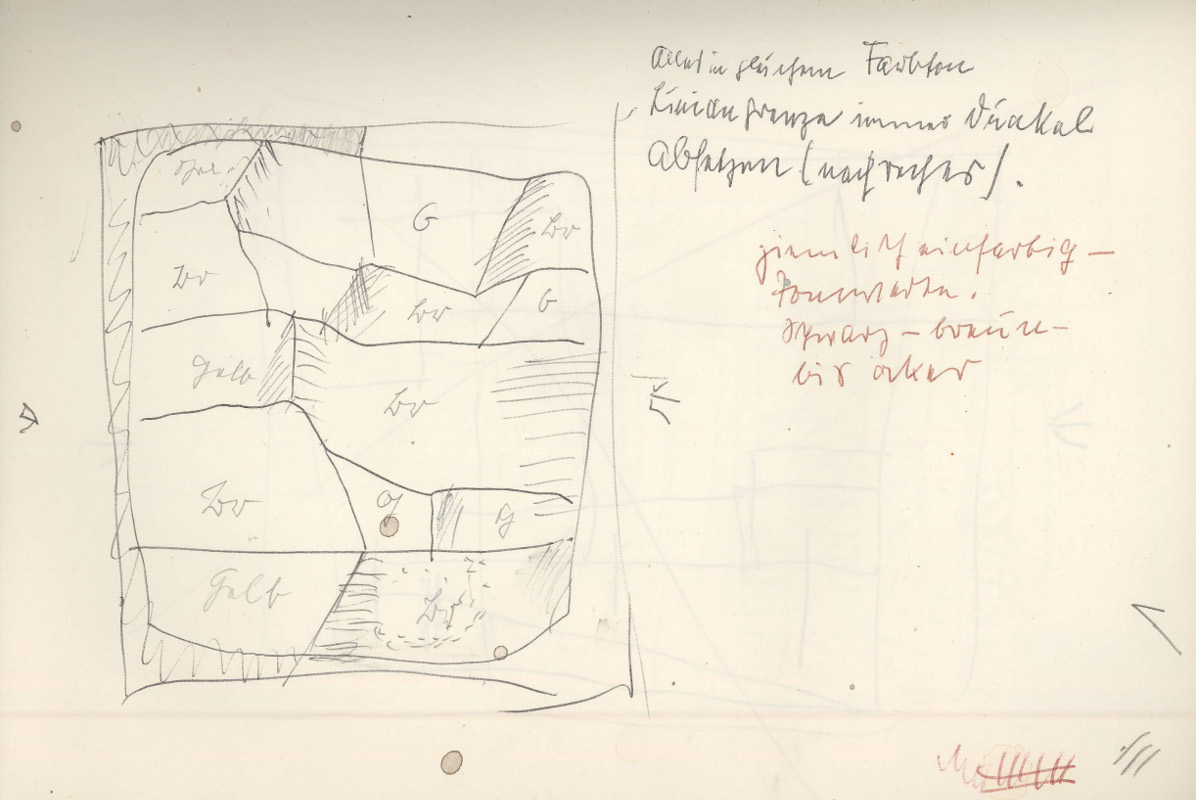 Alles in gleichem Farbton
Liniengrenze immer dunkel
Absetzen (nach rechts).
ziemlich einfarbig –
Tonwerte.
Schwarz – braun –
bis ocker
G
br
br
br
G
Gelb
br
Br
g
g
Gelb
Br